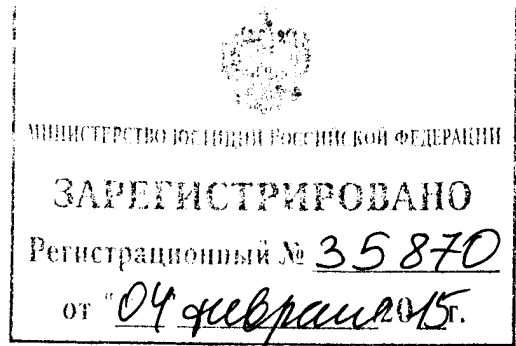 МИНИСТЕРСТВО ЮСТИЦИИ РОССИЙСКОЙ ФЕДЕРАЦИИ
ЗАРЕГИСТРИРОВАНО
Регистрационный № 35870
от "04 февраля 2015г.